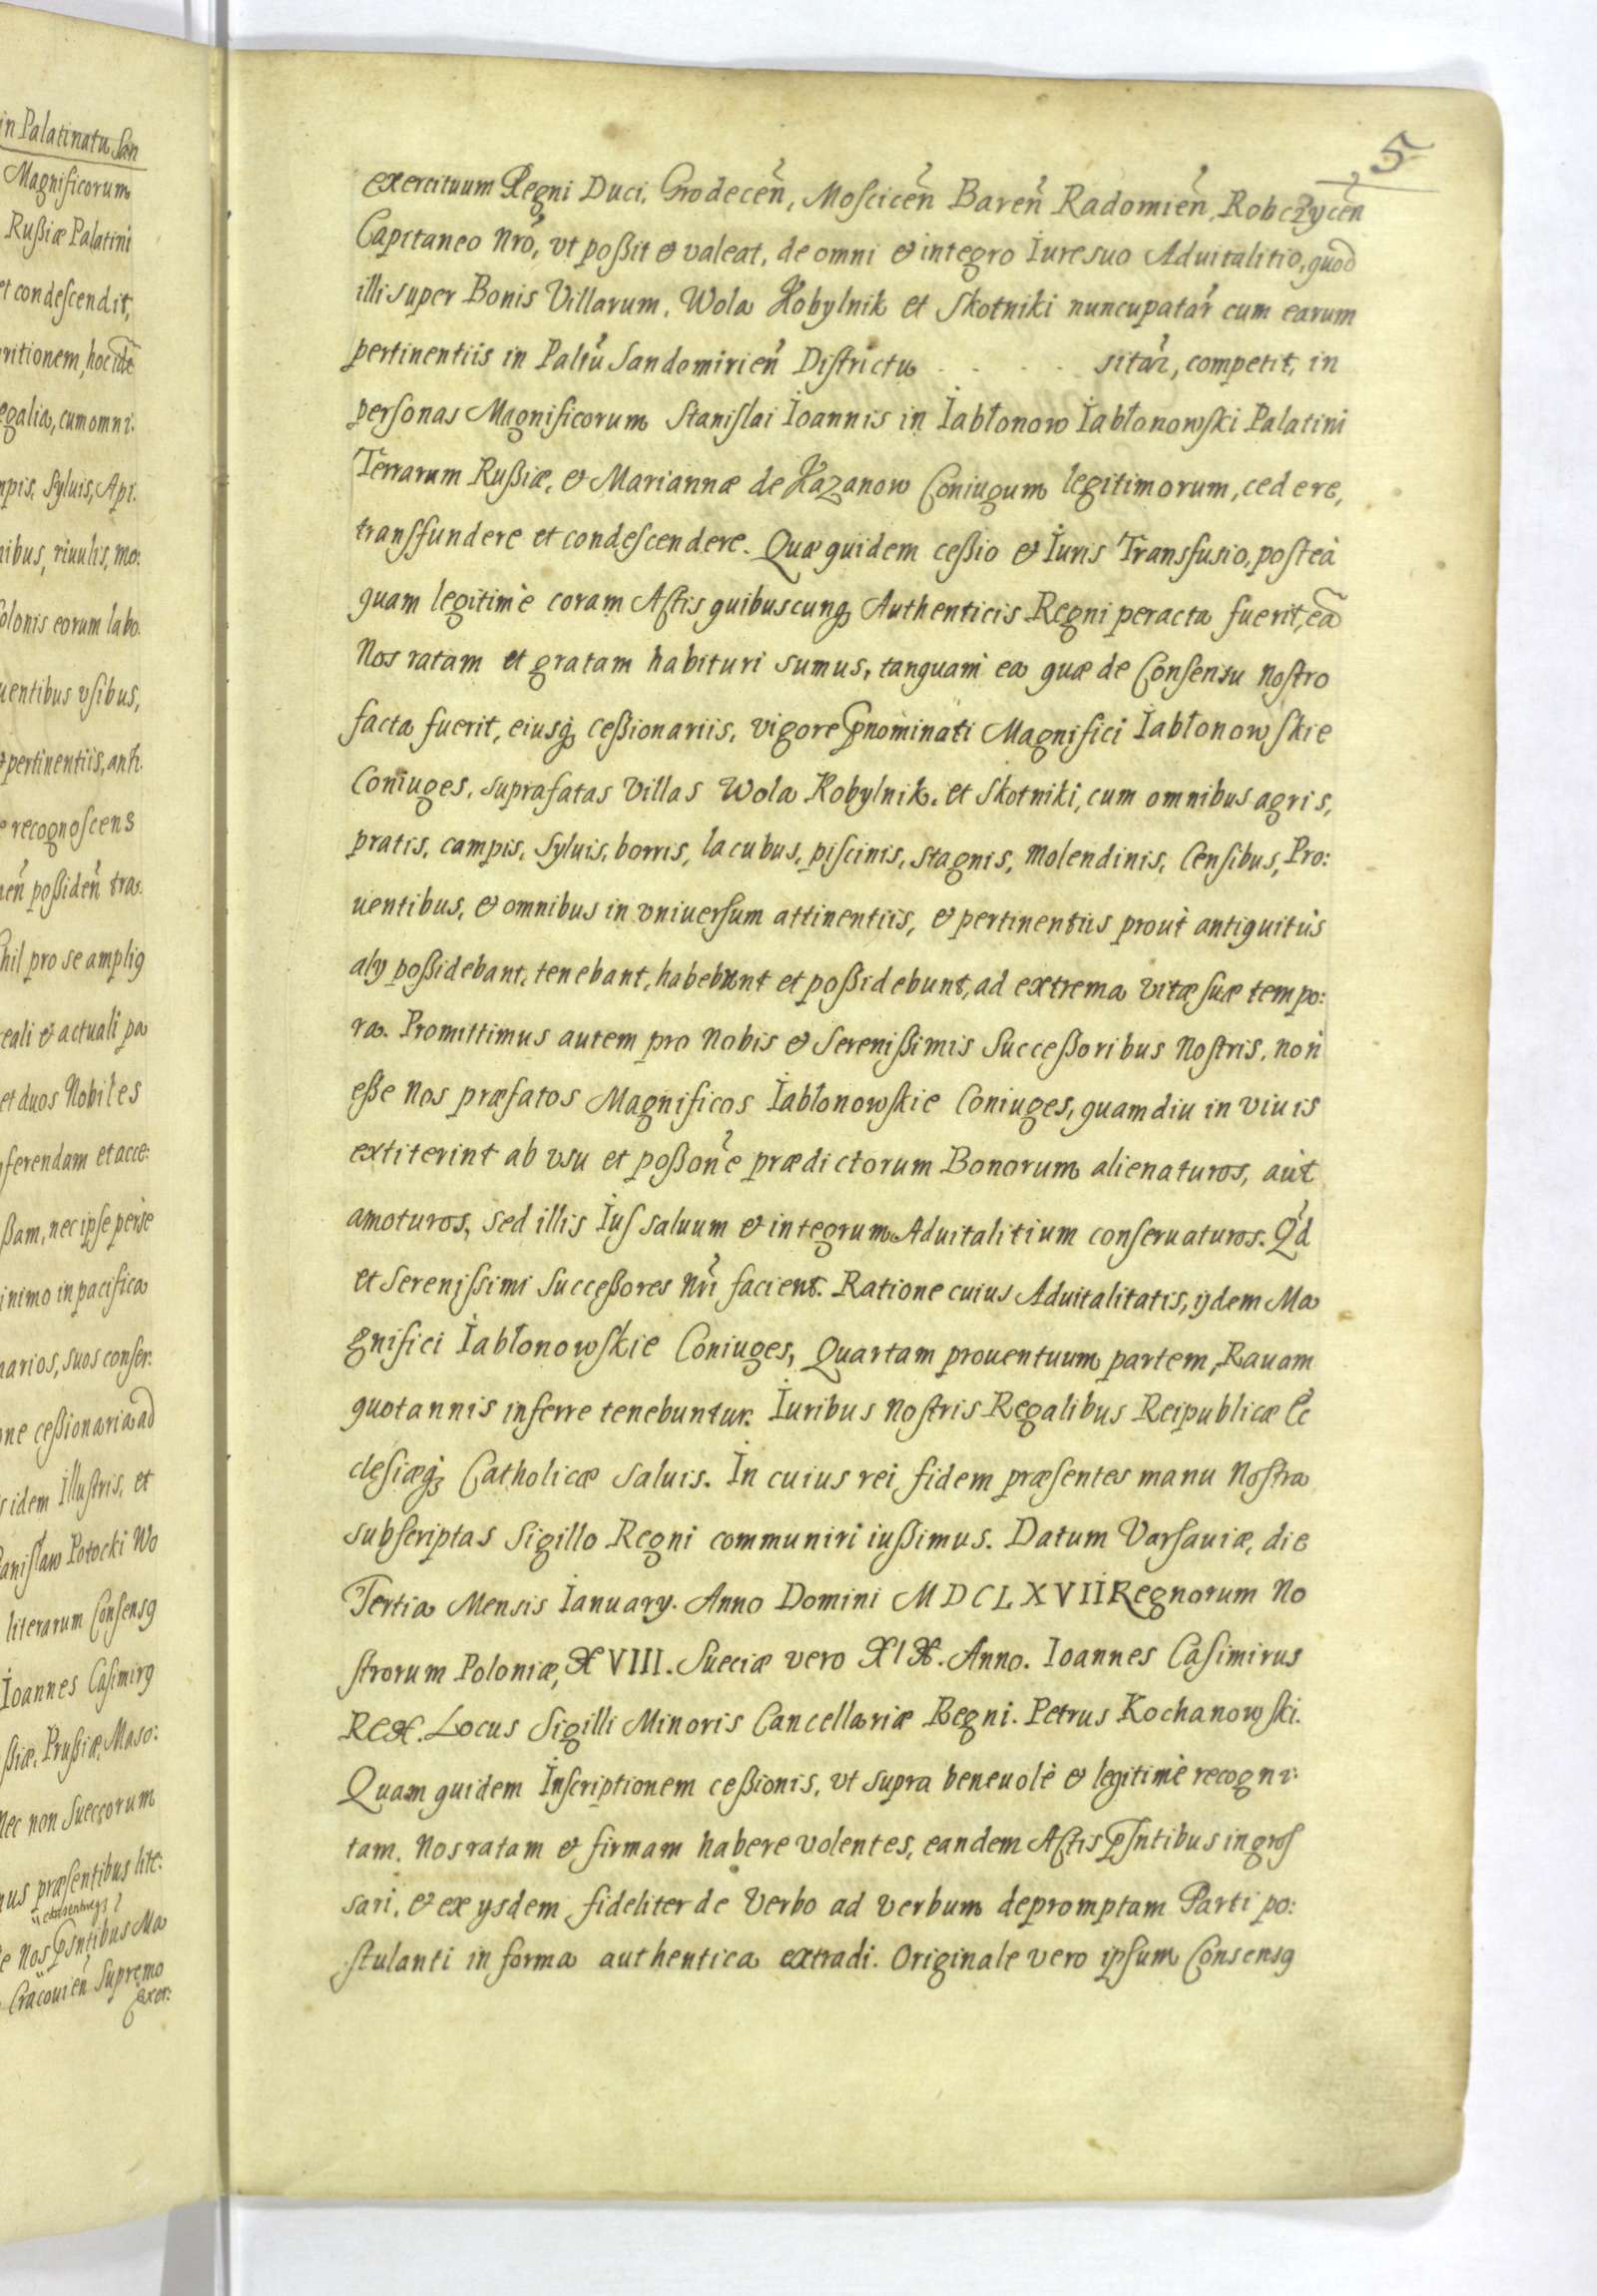 in Palatinatu San
Magnificorum
Rußiæ Palatini
et condeſcendit,
ritionem, hoc ide
egalia, cum omni.
mpis, Sylvis, Api.
nibus, riuulis, me:
olonis eorum labo.
uentibus vſibus,
& pertinentiis, anti.
e recognoſcens
en̄ poßiden̄ tra.
hil pro se ampliꝯ
reali & actuali pa
et duos Nobiles
ferendam et acce:
ßam, nec ipſe per se
inimo in pacifica
narios, suos conſer.
one ceßionaria ad
s idem Illuſtris, et
taniſlaw Potocki Wo
literarum Conſensꝯ
Ioannes Caſimirꝯ
ßiæ, Prußiæ, Maso:
Nec non Suecorum
nus præſentibus lite:
e Nos Pſntibus Ma
Cracouien̄ Supremo
Exer:
5
exercituum Regni Duci, Grodecen̄, Moſcicen̄ Baren̄ Radomien̄, Robczycen̄
Capitaneo Nrō, vt poßit & valeat, de omni & integro Iure suo Aduitalitio, quod
illi super Bonis Villarum, Wola Kobylnik et Skotniki nuncupatar̄ cum earum
pertinentiis in Paltū Sandomirien̄ Diſtrictu . . . . sitar̄, competit, in
perſonas Magnificorum Staniſlai Ioannis in Iabłonow Iabłonowſki Palatini
Terrarum Rußiæ, & Mariannæ de Kazanow Coniugum legitimorum, cedere,
tranſfundere et condeſcendere. Quæ quidem ceßio & Iuris Transfusio, poſteà
quam legitimè coram Actis quibuscunq Authenticis Regni peracta fuerit, eā
Nos ratam et gratam habituri sumus, tanquam ea quæ de Conſensu noſtro
facta fuerit, eiusq ceßionariis, vigore Pnominati Magnifici Iabłonowſkie
Coniuges, suprafatas Villas Wola Kobylnik, et Skotniki, cum omnibus agris,
pratis, campis, Syluis, borris, lacubus, piſcinis, stagnis, molendinis, Cenſibus, Pro:
uentibus, & omnibus in vniuerſum attinentiis, & pertinentiis prout antiquitùs
alÿ poßidebant, tenebant, habebunt et poßidebunt, ad extrema vitæ ſuæ tempo:
ra. Promittimus autem pro Nobis & Sereniſſimis Succeßoribus Noſtris, non
eße Nos præfatos Magnificos Iabłonowſkie Coniuges, quamdiu in viuis
extiterint ab vsu et poßon̄e prædictorum Bonorum alienaturos, aut
amoturos, sed illis Iuſ saluum & integrum Aduitalitium conſeruaturos. Qd̄
et Sereniſsimi Succeßores Nr̄i facient. Ratione cuius Aduitalitatis, ÿdem Ma
gnifici Iabłonowſkie Coniuges, Quartam prouentuum partem, Rauam
quotannis inferre tenebuntur. Iuribus Noſtris Regalibus Reipublicæ Ec
cleſiæq Catholicæ saluis. In cuius rei fidem præſentes manu Noſtra
subſcriptas Sigillo Regni communiri iußimus. Datum Varſauiæ, die
Tertia Mensis Ianuarÿ. Anno Domini MDCLXVII Regnorum No
ſtrorum Poloniæ, XVIII. Sueciæ vero XIX. Anno. Ioannes Caſimirus
Rex. Locus Sigilli Minoris Cancellariæ Regni. Petrus Kochanowſki.
Quam quidem Inſcriptionem ceßionis, vt supra beneuolè & legitimè recogni:
tam. Nos ratam & firmam habere volentes, eandem Actis Pſntibus ingroſ
sari, & ex ÿsdem fideliter de Verbo ad verbum depromptam Parti po:
ſtulanti in forma authentica extradi. Originale vero ipſum Consensꝯ